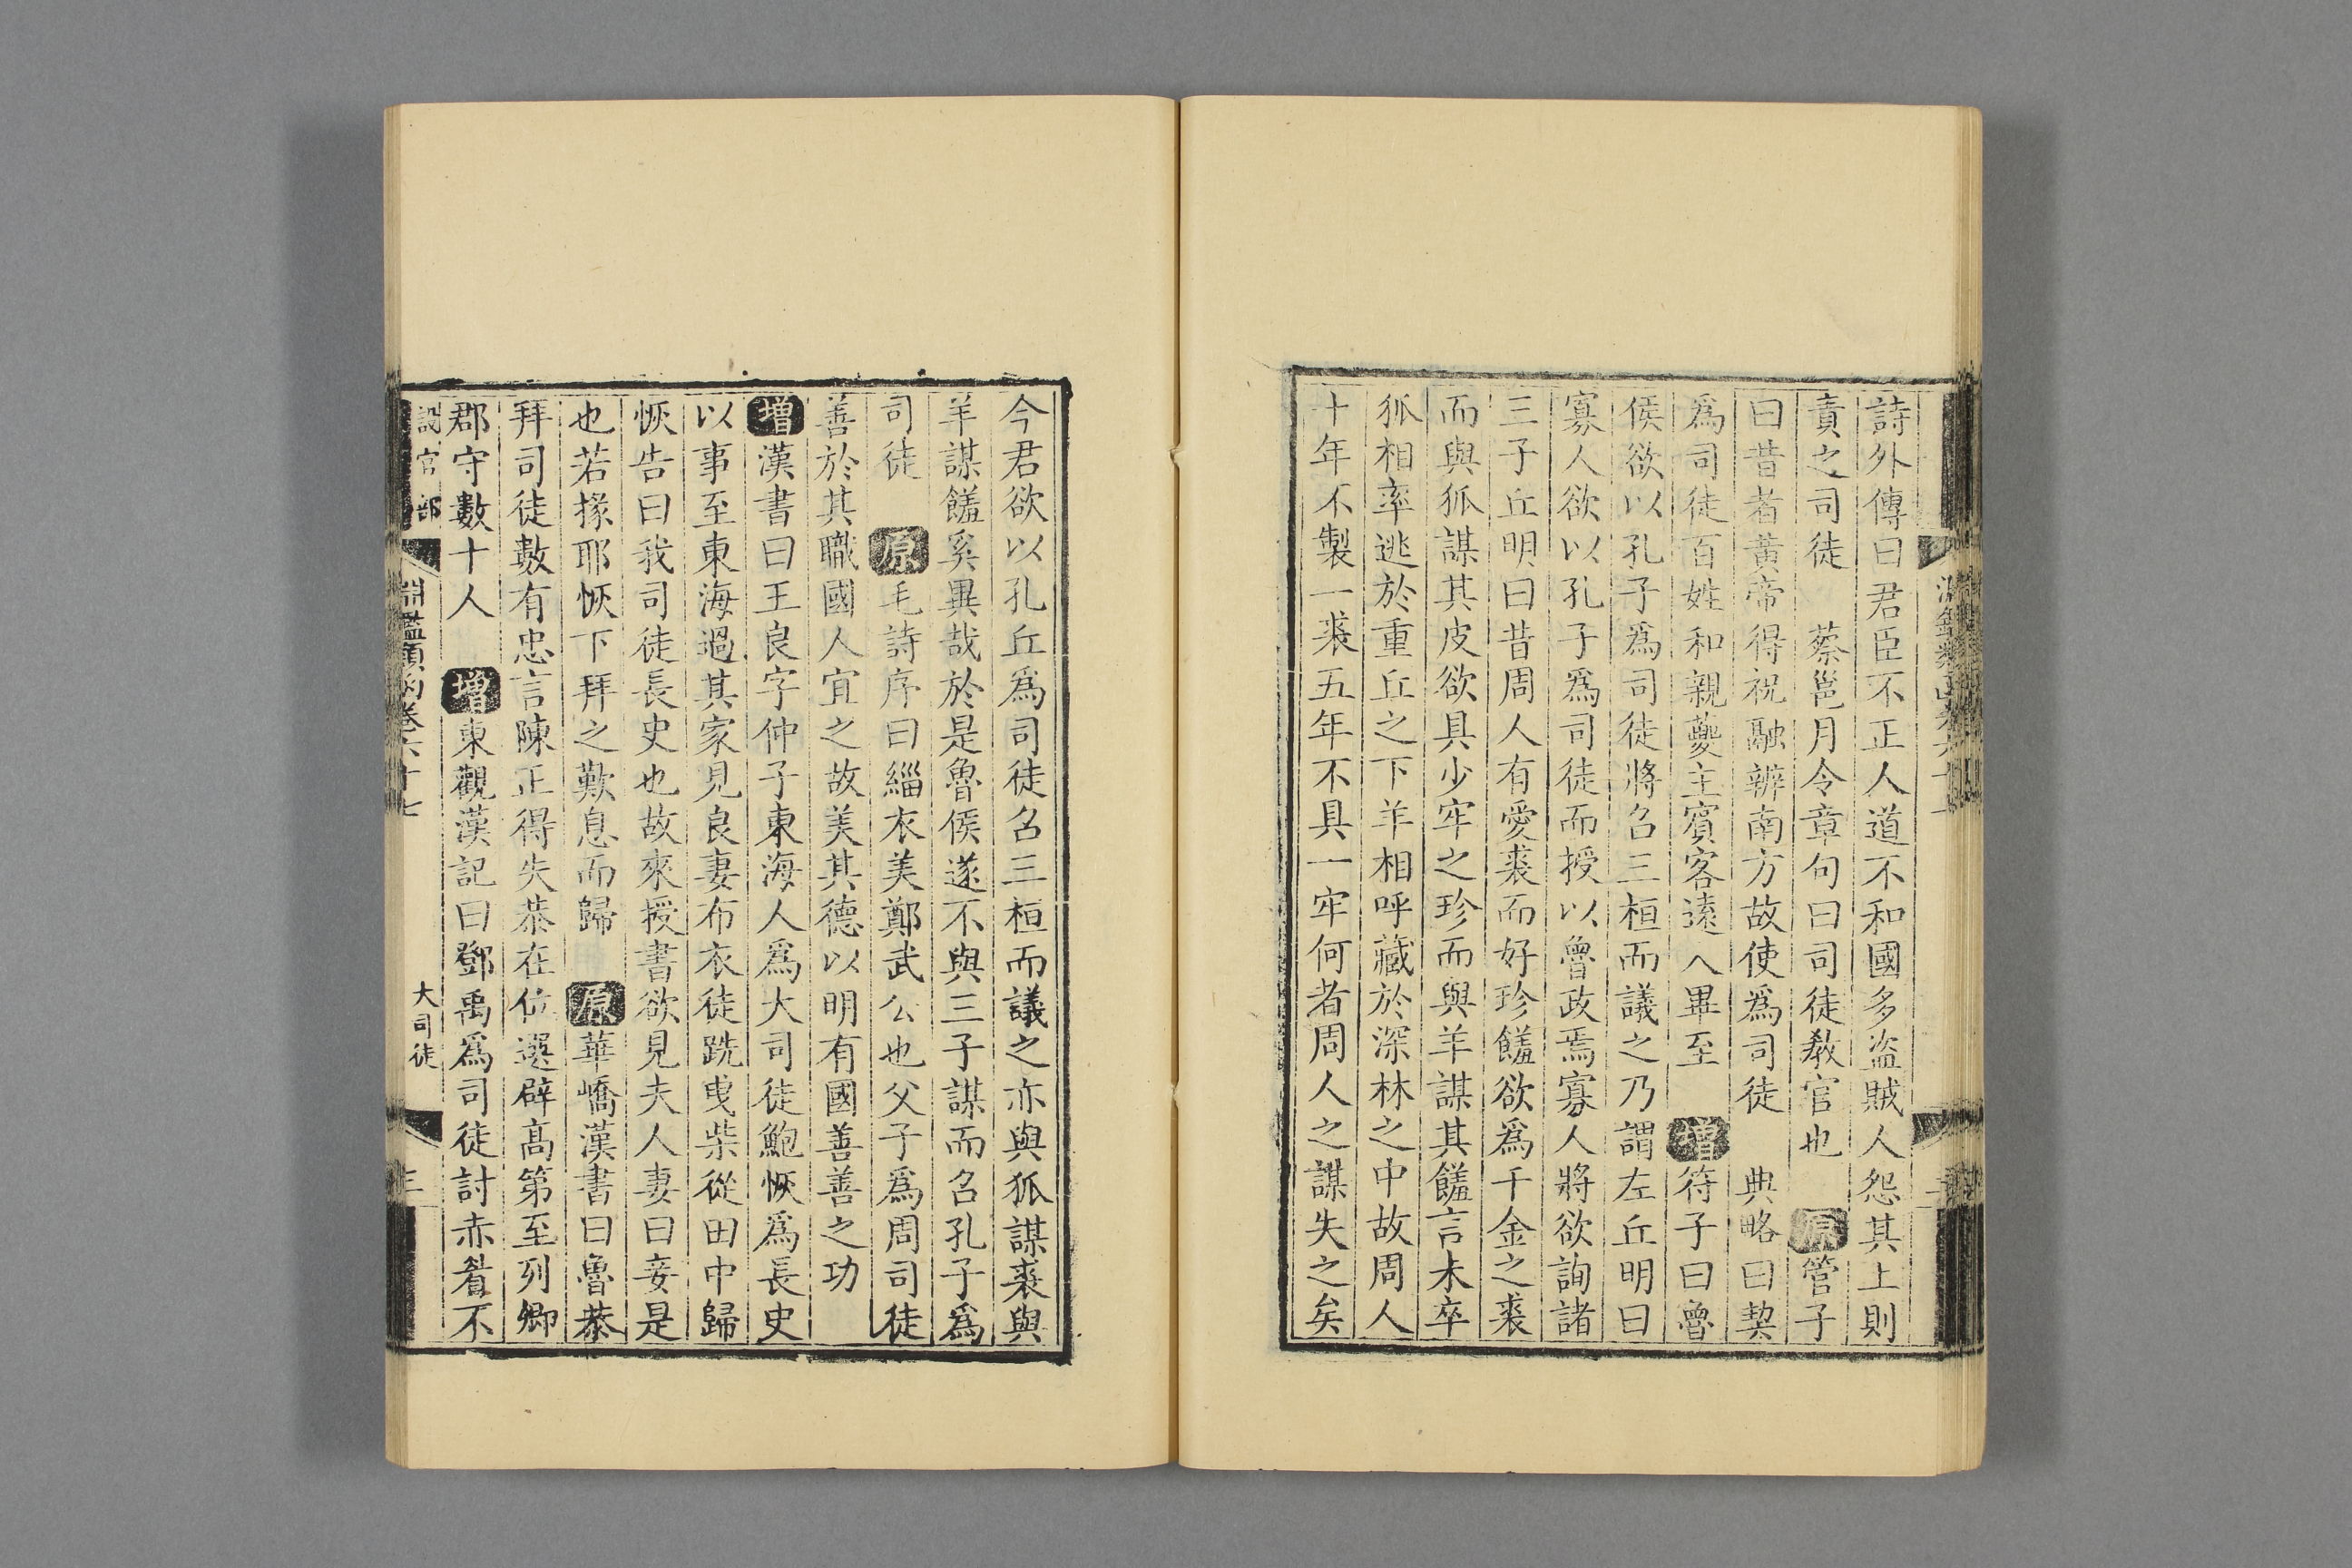 詩外傳曰君臣不正人道不和國多盗賊人怨其上則
責之司徒　蔡邕月令章句曰司徒敎官也　原管子
曰昔者黃帝得祝融辨南方故使爲司徒　典略曰契
爲司徒百姓和親夔主賓客遠人畢至　增符子曰魯
侯欲以孔子爲司徒將召三桓而議之乃謂左丘明曰
寡人欲以孔子爲司徒而授以魯政焉寡人將欲詢諸
三子丘明曰昔周人有愛裘而好珍饈欲爲千金之裘
而與狐謀其皮欲具少牢之珍而與羊謀其饈言未卒
狐相率逃於重丘之下羊相呼藏於深林之中故周人
十年不製一裘五年不具一牢何者周人之謀失之矣
今君欲以孔丘爲司徒名三桓而議之亦與狐謀裘與
羊謀饈奚異哉於是魯侯遂不與三子謀而召孔子爲
司徒　原毛詩序曰緇衣美鄭武公也父子爲周司徒
善於其職國人宜之故美其德以明有國善善之功
增漢書曰王良字仲子東海人爲大司徒鮑恢爲長史
以事至東海過其家見良妻布衣徒跣曳柴從田中歸
恢告曰我司徒長史也故來授書欲見夫人妻曰妾是
也若掾耶恢下拜之歎息而歸　原華嶠漢書曰魯恭
拜司徒數有忠言陳正得失恭在位選辟高第至列卿
郡守數十人　增東觀漢記曰鄧禹爲司徒討赤眉不
設官部　淵鑑類函卷六十七　大司徒　三